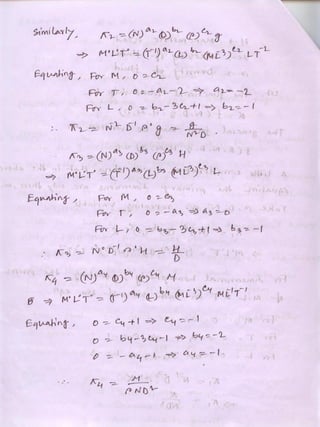 Similarly, π₂ = (N)^a₂ (D)^b₂ (ρ)^c₂ g
⇒ M°L°T° = (T⁻¹)^a₂ (L)^b₂ (ML⁻³)^c₂ LT⁻²
Equating, For M, 0 = c₂
For T, 0 = -a₂ - 2 ⇒ a₂ = -2
For L, 0 = b₂ - 3c₂ + 1 ⇒ b₂ = -1
∴ π₂ = N⁻² D⁻¹ ρ° g = g/N²D
π₃ = (N)^a₃ (D)^b₃ (ρ)^c₃ H
⇒ M°L°T° = (T⁻¹)^a₃ (L)^b₃ (ML⁻³)^c₃ L
Equating, For M, 0 = c₃
For T, 0 = -a₃ ⇒ a₃ = 0
For L, 0 = b₃ - 3c₃ + 1 ⇒ b₃ = -1
∴ π₃ = N° D⁻¹ ρ° H = H/D
π₄ = (N)^a₄ (D)^b₄ (ρ)^c₄ μ
⇒ M°L°T° = (T⁻¹)^a₄ (L)^b₄ (ML⁻³)^c₄ ML⁻¹T⁻¹
Equating, 0 = c₄ + 1 ⇒ c₄ = -1
0 = b₄ - 3c₄ - 1 ⇒ b₄ = -2
0 = -a₄ - 1 ⇒ a₄ = -1
∴ π₄ = μ/ρND²